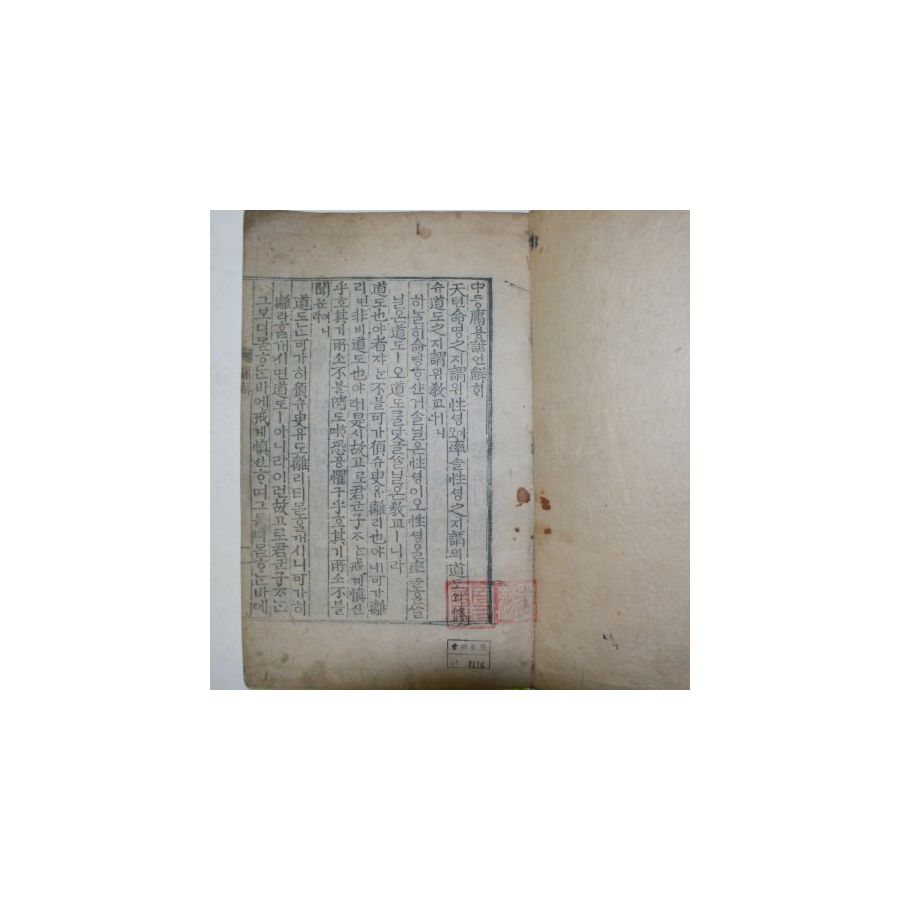 中듕庸용諺언解ᄒᆡ
天텬命명之지謂위性셩이오率솔性셩之지謂위道도ㅣ오修슈
道도之지謂위敎교ㅣ니라
하ᄂᆞᆯ히命명ᄒᆞ샨거슬닐온性셩이오性셩을率솔ᄒᆞᆷ을
닐온道도ㅣ오道도ᄅᆞᆯ닷글ᄊᆞᆯ닐온敎교ㅣ니라
道도也야者쟈ᄂᆞᆫ不블可가須슈臾유離리也야ㅣ니可가離
리면非비道도也야ㅣ라是시故고로君군子ᄌᆞᄂᆞᆫ戒계愼신
乎호其기所소不블睹도ᄒᆞ며恐공懼구乎호其기所소不블
聞문이니라
道도ᄂᆞᆫ可가히須슈臾유도離리티몯ᄒᆞᆯ꺼시니可가히
離리ᄒᆞᆯ꺼시면道도ㅣ아니라이런故고로君군子ᄌᆞᄂᆞᆫ
그보디몯ᄒᆞᄂᆞᆫ바에戒계愼신ᄒᆞ며그듣디몯ᄒᆞᄂᆞᆫ바에
3116